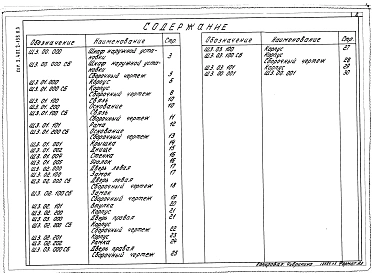 СОДЕРЖАНИЕ
Обозначение Наименование Стр.
ШЗ. 00. 000 Шкаф наружной уста-
новки 3
ШЗ. 00. 000 СБ Шкаф наружной ус-
тановки
Сборочный чертеж 3
ШЗ. 01. 000 Корпус 5
ШЗ. 01. 000 СБ Корпус
Сборочный чертеж 8
ШЗ. 01. 100 Связь 10
ШЗ. 01. 200 Основание 10
ШЗ. 01. 100 СБ Связь
Сборочный чертеж 11
ШЗ. 01. 101 Рама 12
ШЗ. 01. 200 СБ Основание
Сборочный чертеж 13
ШЗ. 01. 001 Крышка 14
ШЗ. 01. 002 Днище 15
ШЗ. 01. 004 Стенка 16
ШЗ. 01. 005 16
ШЗ. 02. 000 Дверь левая 17
ШЗ. 02. 100 Замок 17
ШЗ. 02. 000 СБ Дверь левая
Сборочный чертеж 18
ШЗ. 02. 100 СБ Замок
Сборочный чертеж 19
ШЗ. 02. 101 Втулка 20
ШЗ. 02. 200 Корпус 21
ШЗ. 03. 000 Дверь правая 21
ШЗ. 02. 200 СБ Корпус
Сборочный чертеж 22
ШЗ. 02. 201 Корпус 23
ШЗ. 02. 202 Рамка 24
ШЗ. 03. 000 СБ Дверь правая
Сборочный чертеж 25
Обозначение Наименование Стр.
ШЗ. 03. 100 Корпус 27
ШЗ. 03. 100 СБ Корпус
Сборочный чертеж 28
ШЗ. 03. 101 Корпус 29
ШЗ. 00. 001 ШЗ. 00. 001 30